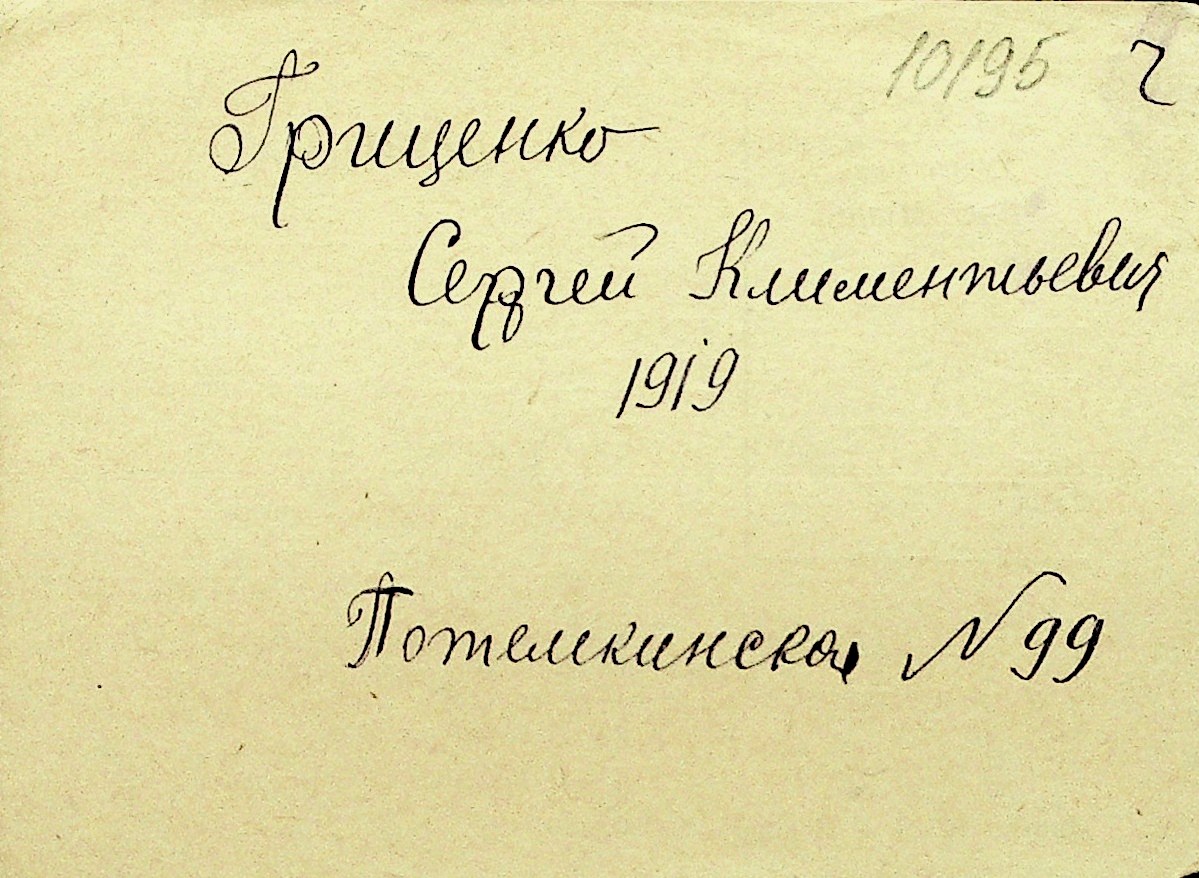 10195 г
Гриценко
Сергей Климентьевич
1919
Потемкинская N 99